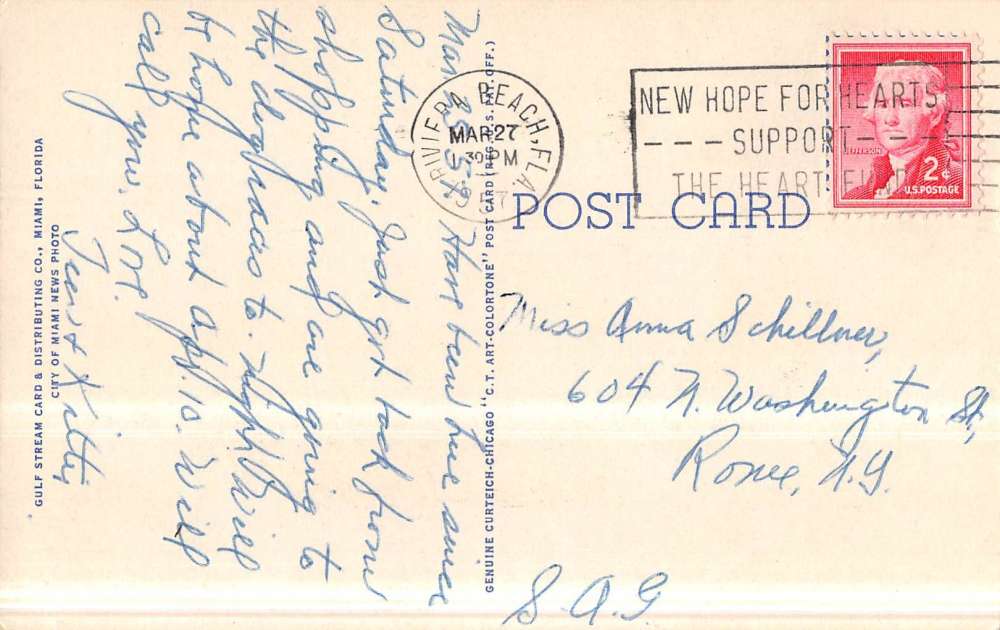 Mar. 25-59 Have been here since
Saturday. Just got back from
shopping and are going to
the dog races to-night. Will
be home about Apr. 15. Will
call you. Love.
& Kitty
GULF STREAM CARD & DISTRIBUTING CO., MIAMI, FLORIDA
CITY OF MIAMI NEWS PHOTO
GENUINE CURTEICH-CHICAGO "C.T. ART-COLORTONE" POST CARD (REG. U.S. PAT. OFF.)
RIVIERA BEACH, FLA.
MAR 27
1 30 PM
NEW HOPE FOR HEARTS
SUPPORT
THE HEART FUND
JEFFERSON
2¢
U.S. POSTAGE
POST CARD
Miss Anna Schillner,
604 N. Washington St,
Rome, N.Y.
S.A.G